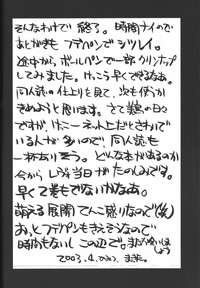 そんなわけで 終了。時間ナイので
あとがきも フデペンで シツレイ。
途中から ボールペンで一部 クリンナップ
してみました。けっこう早くできるなあ。
同人誌の仕上りを見て、次も使うか
きめようと思います。さて 難の日々
ですが、けっこーネット上だとさわいで
いる人が多いので、同人誌も
一杯ありそう。どんな本があるのか
今からLv5当日がたのしみです。
早くて巻もでないかなあ。
萌える展開てんこ盛りなので(笑)
あ、とフデペンもきえそうなので
時間もないしこの辺で。またお会いしましょう
2003.4.